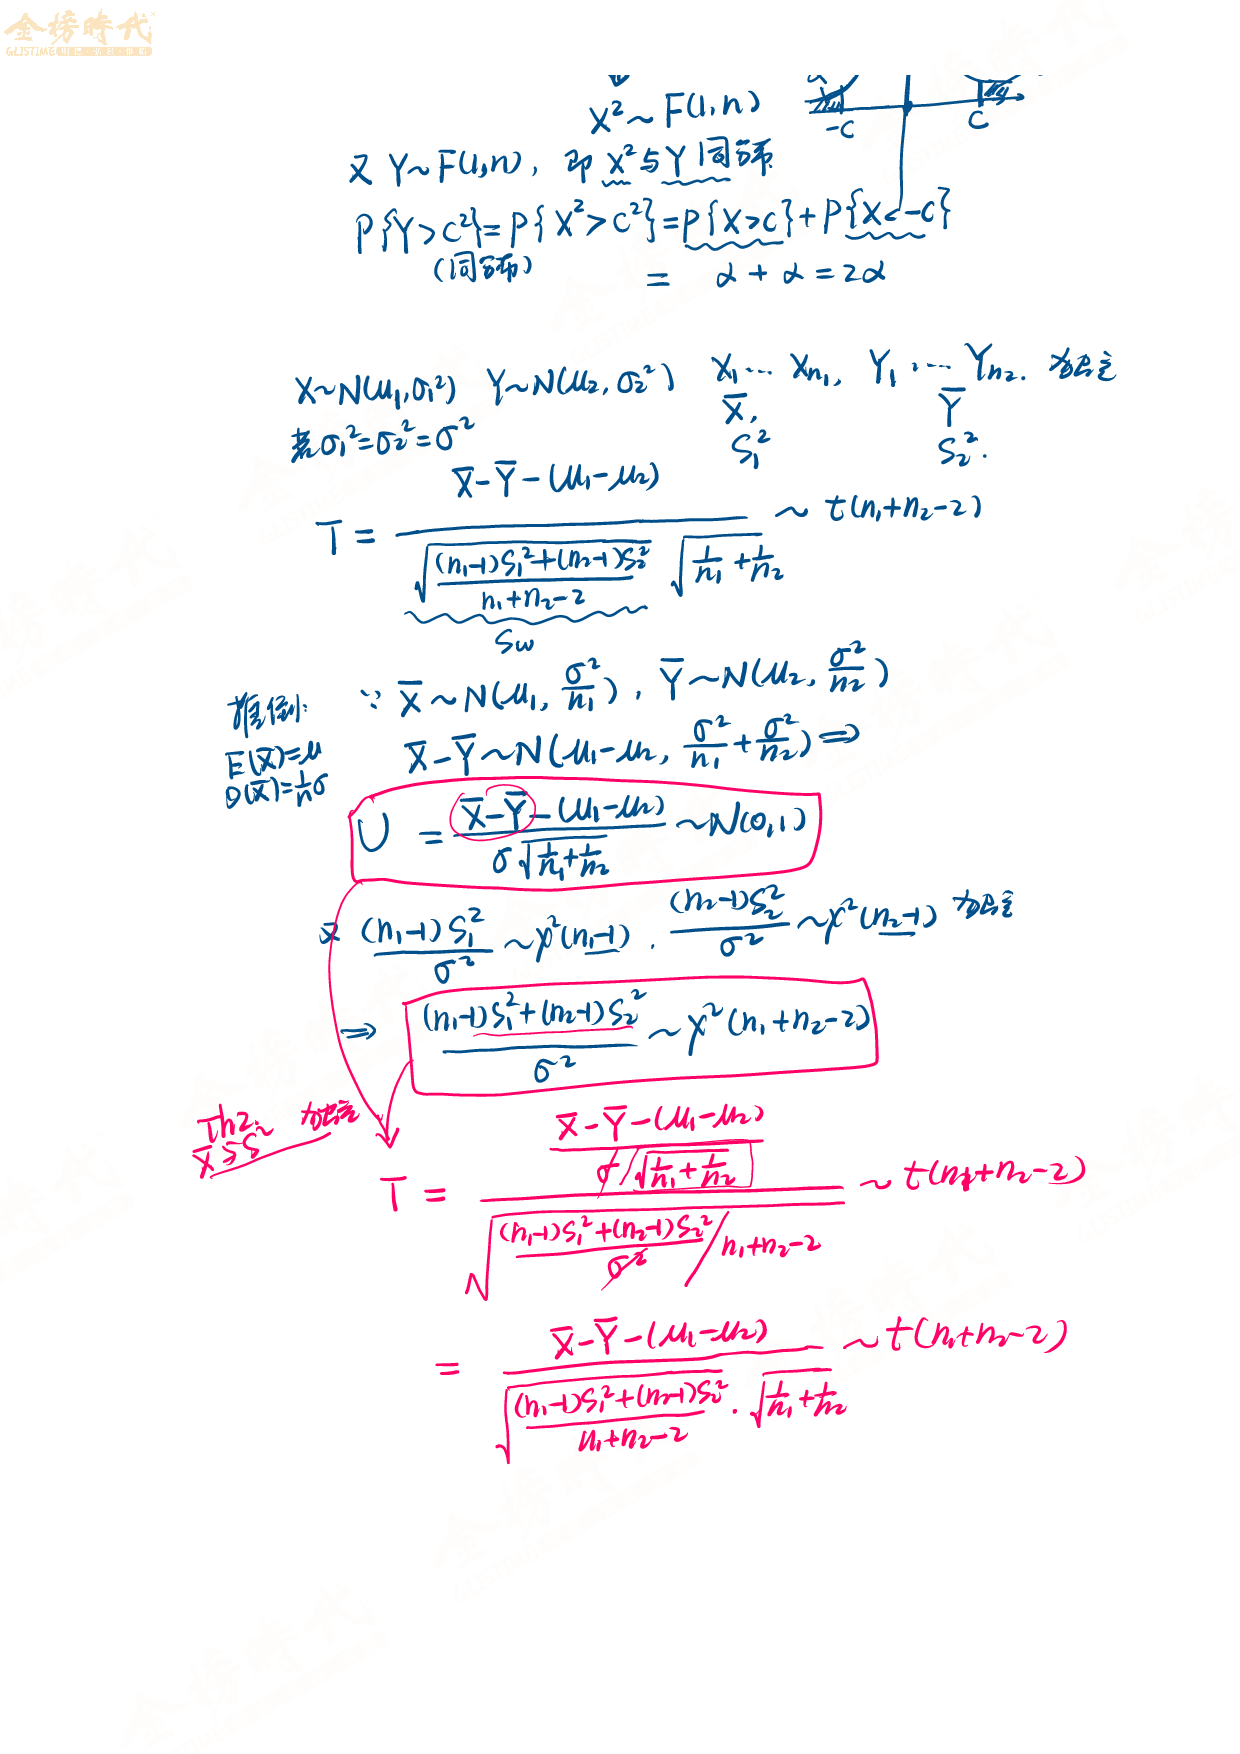 金榜時代
GLISTIME
X²~F(1,n)
-C C
又 Y~F(1,n), 即 X²与Y同分布
P{Y>C²}=P{X²>C²}=P{X>C}+P{X<-C}
(同分布) = α+α=2α
X~N(μ₁,σ₁²) Y~N(μ₂,σ₂²) X₁…Xn₁, Y₁…Yn₂. 独立
若σ₁²=σ₂²=σ² X̄, Ȳ
S₁² S₂².
T = (X̄-Ȳ-(μ₁-μ₂)) / (√(((n₁-1)S₁²+(n₂-1)S₂²)/(n₁+n₂-2)) √(1/n₁+1/n₂)) ~ t(n₁+n₂-2)
Sw
推倒: ∵ X̄~N(μ₁, σ²/n₁), Ȳ~N(μ₂, σ²/n₂)
E(X̄)=μ X̄-Ȳ~N(μ₁-μ₂, σ²/n₁+σ²/n₂) ⇒
D(X̄)=1/n σ
U = (X̄-Ȳ-(μ₁-μ₂)) / (σ√(1/n₁+1/n₂)) ~N(0,1)
又 (n₁-1)S₁²/σ² ~χ²(n₁-1). (n₂-1)S₂²/σ² ~χ²(n₂-1) 独立
⇒ ((n₁-1)S₁²+(n₂-1)S₂²)/σ² ~χ²(n₁+n₂-2)
Th2. 独立
X̄与S²
T = ((X̄-Ȳ-(μ₁-μ₂)) / (σ/√(1/n₁+1/n₂))) / √(((n₁-1)S₁²+(n₂-1)S₂²)/σ² / n₁+n₂-2) ~ t(n₁+n₂-2)
= (X̄-Ȳ-(μ₁-μ₂)) / (√(((n₁-1)S₁²+(n₂-1)S₂²)/(n₁+n₂-2)) · √(1/n₁+1/n₂)) ~t(n₁+n₂-2)